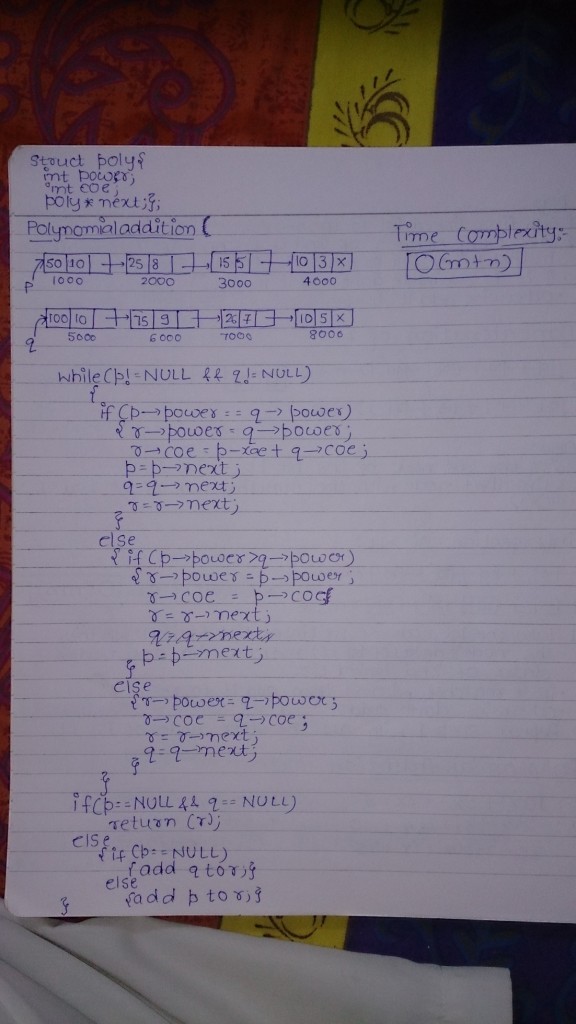 Struct poly{
int power;
int coe;
poly * next;};
Polynomial addition {
Time Complexity:-
O(m+n)
50 10 25 8 15 5 10 3 x
p 1000 2000 3000 4000
100 10 75 9 26 7 10 5 x
q 5000 6000 7000 8000
while(p!=NULL && q!=NULL)
{
if (p→power == q→power)
{ r→power = q→power;
r→coe = p→coe + q→coe;
p=p→next;
q=q→next;
r=r→next;
}
else
{ if (p→power>q→power)
{ r→power = p→power;
r→coe = p→coe;
r= r→next;
q=q→next;
p=p→next;
}
else
{r→power= q→power;
r→coe = q→coe;
r= r→next;
q= q→next;
}
}
if(p==NULL && q==NULL)
return (r);
else
{ if (p==NULL)
{add q to r;}
else
{add p to r;}
}